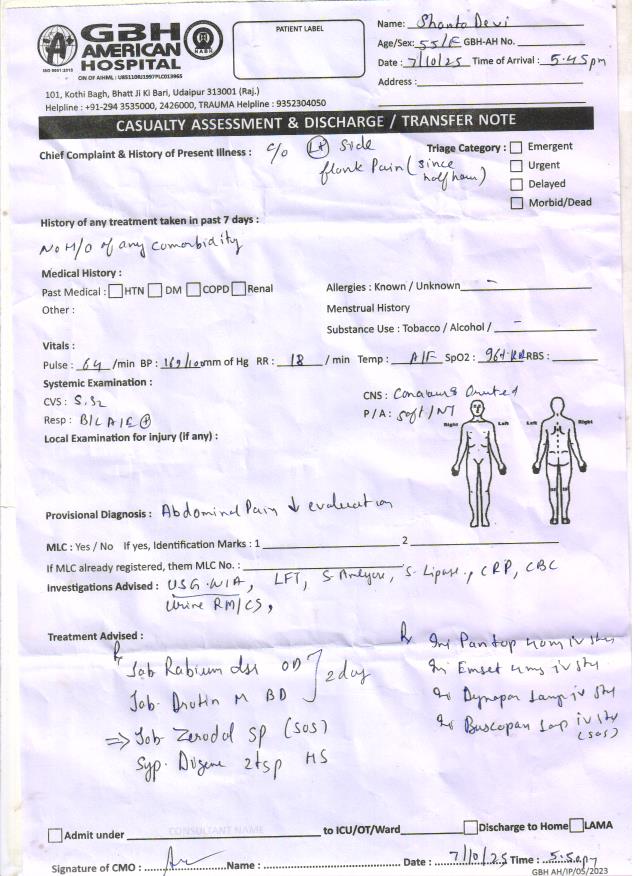 GBH
AMERICAN
HOSPITAL
ISO 9001:2015
NABH
CIN OF AHML : U85110RJ1997PLC013965
PATIENT LABEL
Name: Shanta Devi
Age/Sex: 55/F GBH-AH No.
Date : 7/10/25 Time of Arrival : 5:45pm
Address :
101, Kothi Bagh, Bhatt Ji Ki Bari, Udaipur 313001 (Raj.)
Helpline : +91-294 3535000, 2426000, TRAUMA Helpline : 9352304050
CASUALTY ASSESSMENT & DISCHARGE / TRANSFER NOTE
Chief Complaint & History of Present Illness : c/o Lt side
flank Pain (since
half hour)
Triage Category : Emergent
Urgent
Delayed
Morbid/Dead
History of any treatment taken in past 7 days :
No H/o of any comorbidity
Medical History :
Past Medical : HTN DM COPD Renal
Other :
Allergies : Known / Unknown -
Menstrual History
Substance Use : Tobacco / Alcohol / -
Vitals :
Pulse : 64 /min BP : 169/100 mm of Hg RR : 18 / min Temp : A/F SpO2 : 96% RA RBS :
Systemic Examination :
CVS : S1S2
Resp : B/L AE +
CNS : Conscious Oriented
P/A : Soft/NT
Local Examination for injury (if any) :
Right Left Left Right
Provisional Diagnosis : Abdominal Pain ↓ evaluation
MLC : Yes / No If yes, Identification Marks : 1 2
If MLC already registered, them MLC No. :
Investigations Advised : USG W/A, LFT, S. Amylase, S. Lipase, CRP, CBC
Urine RM/CS,
Treatment Advised :
Rx
Tab Rabium dsr OD
Tab. Drotin M BD
2 day
⇒ Tab Zerodol SP (SOS)
Syp. Digene 2tsp HS
Rx Inj Pantop 40mg iv stat
Inj Emset 4mg iv stat
Inj Dynapar 1amp iv stat
Inj Buscopan 1amp iv stat
(SOS)
Admit under CONSULTANT NAME to ICU/OT/Ward Discharge to Home LAMA
Signature of CMO : Name : Date : 7/10/25 Time : 5:50pm
GBH AH/IP/05/2023